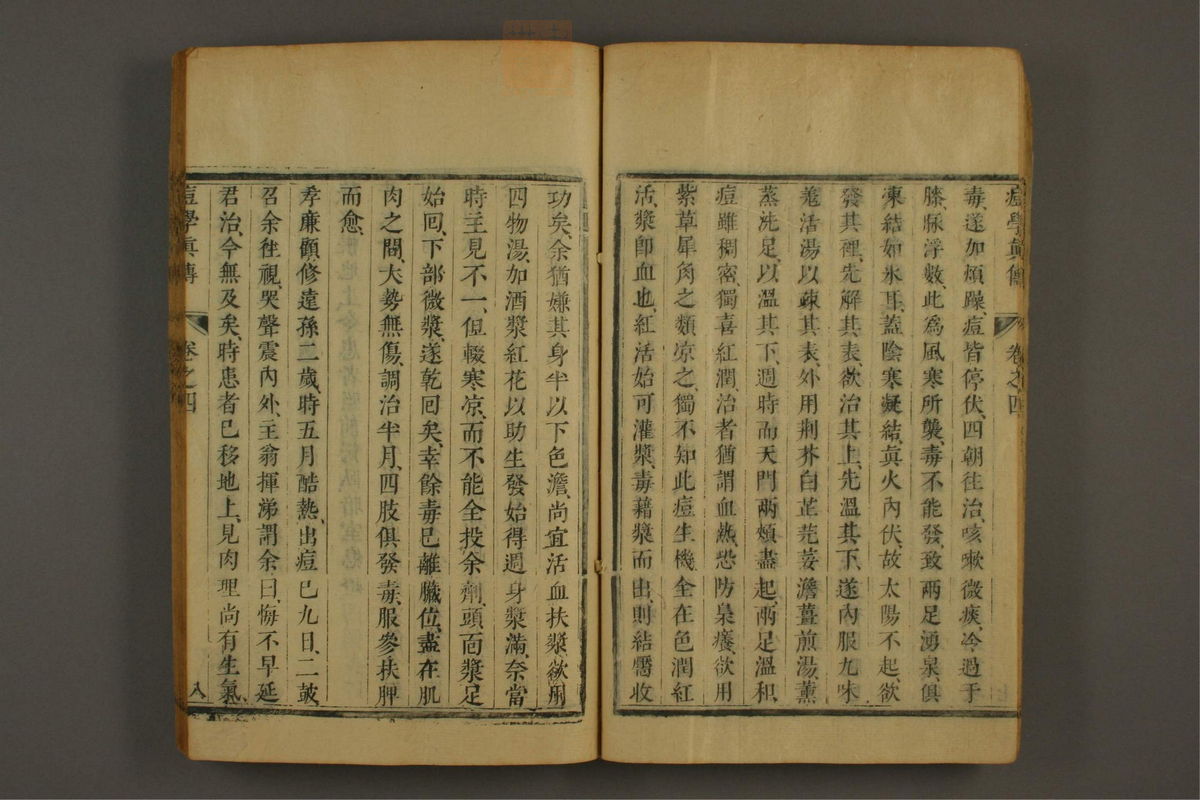 痘學眞傳　卷之四
毒、遂加煩躁、痘皆停伏、四朝往治、咳嗽微痰、冷過于
膝、脉浮數、此爲風寒所襲、毒不能發、致兩足湧泉、俱
凍結如氷耳、蓋陰寒凝結、眞火內伏、故太陽不起、欲
發其裡、先解其表、欲治其上、先溫其下、遂內服九味
羗活湯以疎其表、外用荆芥白芷芫荽澹薑煎湯、薰
蒸洗足、以溫其下、週時而天門兩頰盡起、兩足溫和、
痘雖稠密、獨喜紅潤、治者猶謂血熱、恐防臬癢、欲用
紫草犀角之類凉之、獨不知此痘生機全在色潤紅
活、漿卽血也、紅活始可灌漿、毒藉漿而出、則結靨收
功矣、余猶嫌其身半以下色澹、尚宜活血扶漿、欲用
四物湯、加酒漿紅花以助生發、始得週身漿滿、奈當
時主見不一、但輟寒凉、而不能全投余劑、頭面漿足
始回、下部微漿、遂乾回矣、幸餘毒已離臟位、盡在肌
肉之間、大勢無傷、調治半月、四肢俱發毒、服參扶脾
而愈、
孝廉顧修遠孫二歲、時五月酷熱、出痘已九日、二鼓
召余徃視、哭聲震內外、主翁揮涕謂余曰、悔不早延
君治、今無及矣、時患者已移地上、見肉理尚有生氣、
痘學眞傳　卷之四　八